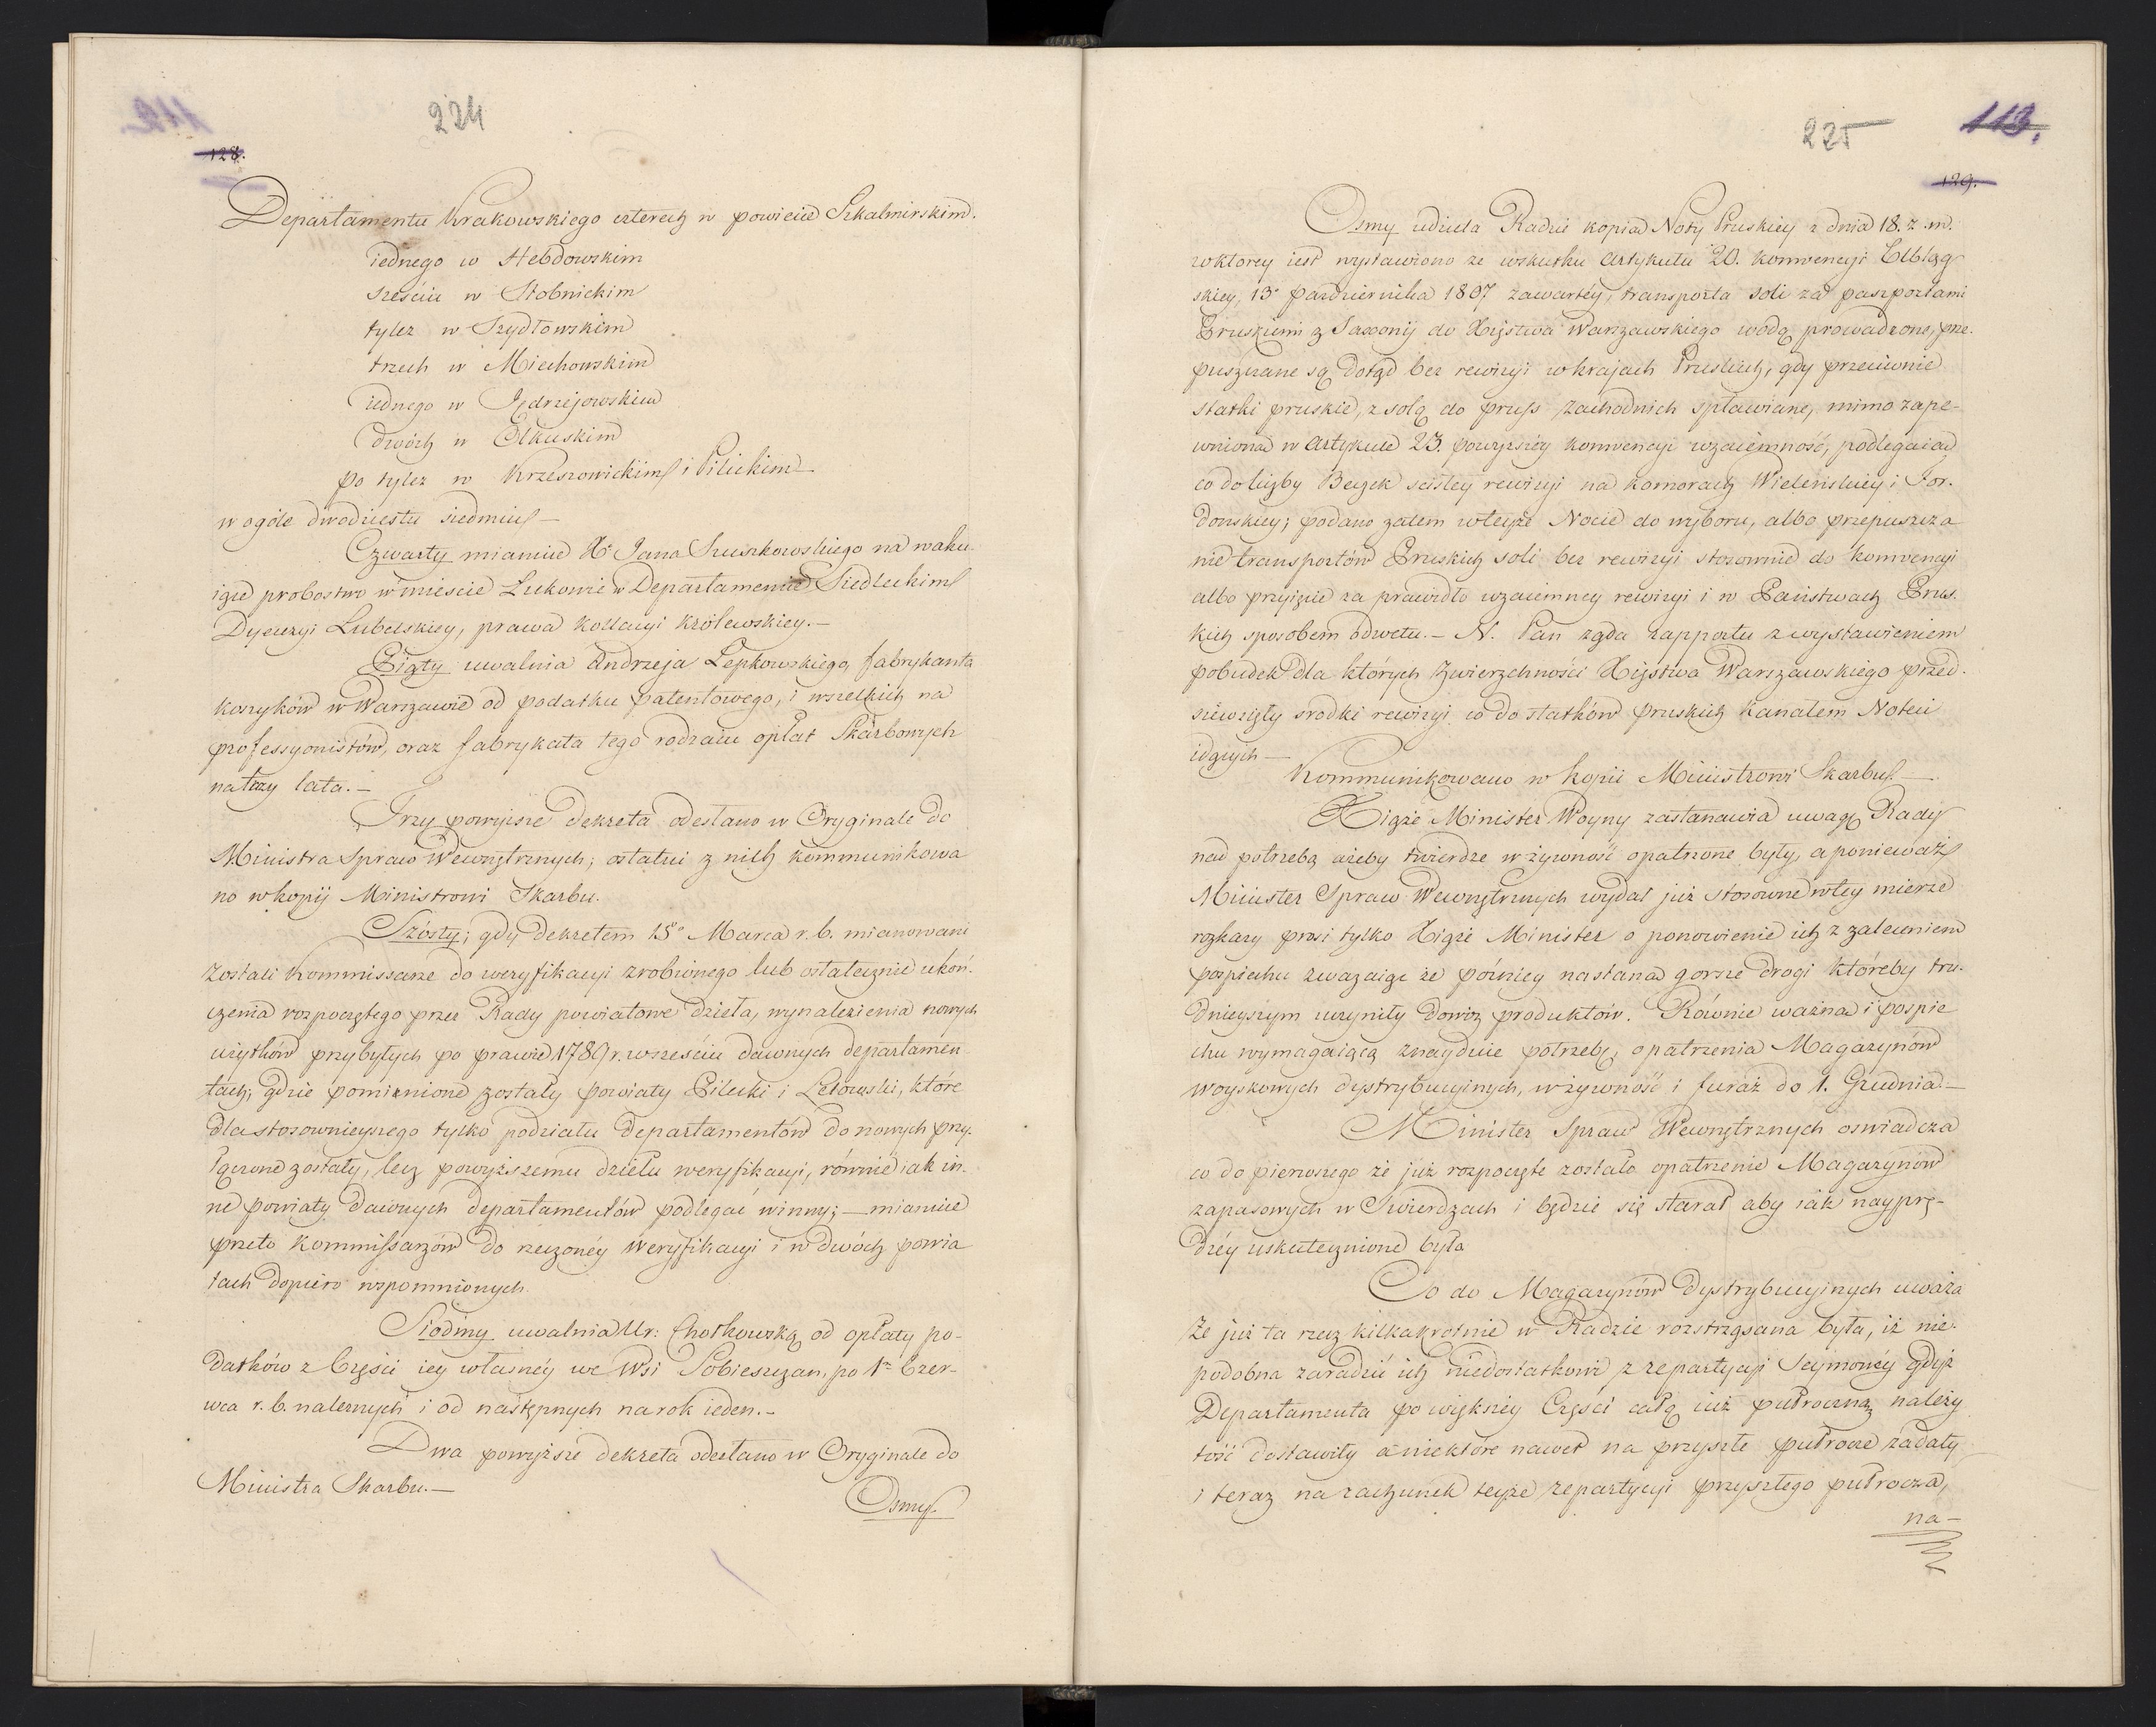 224
128.
Departamentu Krakowskiego czterech w powiecie Szkalmirskim.
iednego w Hebdowskim
sześciu w Stobnickim
tylez w Szydłowskim
trzech w Miechowskim
iednego w Jędrzejowskim
dwóch w Olkuskim
po tylez w Krzeszowickim i Pilickim —
w ogóle dwudziestu siedmiu —
Czwarty mianuie X. Jana Szuszkowskiego na waku-
iące probostwo w mieście Łukowie w Departamencie Siedleckim
Dyecezyi Lubelskiey, prawa kollacyi królewskiey. —
Piąty uwalnia Andrzeja Lepkowskiego, fabrykanta
koszyków w Warszawie od podatku patentowego, i wszelkich na
professyonistów, oraz fabrykata tego rodzaiu opłat Skarbowych
na trzy lata. —
Trzy powyższe dekreta odesłano w Oryginale do
Ministra Spraw Wewnętrznych; ostatni z nich kommunikowa
no w kopij Ministrowi Skarbu.
Szósty; gdy dekretem 15º Marca r. b. mianowani
zostali Kommissarze do weryfikacyi zrobionego lub ostatecznie ukoń.
czenia rozpoczętego przez Rady powiatowe dzieła, wynalezienia nowych
użytków przybyłych po prawie 1789 r. w sześciu dawnych departamen
tach, gdzie pominione zostały powiaty Pilicki i Lelowski, które
dla stosownieyszego tylko podziału departamentów do nowych przy.
łączone zostały, lecz powyższemu dziełu weryfikacyi, równie iak in.
ne powiaty dawnych departamentów podlegać winny; — mianuie
przeto Kommissarzów do rzeczonéy weryfikacyi i w dwóch powia
tach dopiero wspomnionych.
Siódmy uwalnia Ur: Chotkowską od opłaty po-
datków z Części iey własnéy we Wsi Sobieszczan, po 1ⁿ Czer-
wca r. b. należnych i od następnych na rok ieden. —
Dwa powyższe dekreta odesłano w Oryginale do
Ministra Skarbu. —
Osmy.
225
113.
129.
Osmy udziela Radzie kopią Noty Pruskiey z dnia 18. z. m.
w ktorey iest wystawiono ze wskutku Artykułu 20. konwencyi Elbląg
skiey, 13º Pazdziernika 1807 zawartéy, transporta soli za paszportami
Pruskiemi z Saxonij do Xięstwa Warszawskiego wodą prowadzone, prze.
puszczane są dotąd bez rewizyi w krajach Pruskich, gdy przeciwnie
statki pruskie, z solą do Pruss zachodnich spławiane, mimo zape-
wnioną w Artykule 23. powyższéy konwencyi wzaiemność, podlegaią
co do liczby Beczek scisłey rewizyi na komorach Wieleńskiey i For.
dońskiey; podano zatem w teyże Nocie do wyboru, albo przepuszcza
nie transportów Pruskich soli bez rewizyi stosownie do konwencyi
albo przyięcie za prawidło wzaiemney rewizyi i w Państwach Prus.
kich sposobem odwetu. — N. Pan żąda rapportu z wystawieniem
pobudek dla których Zwierzchności Xięstwa Warszawskiego przed.
siewzięły srodki rewizyi co do statków pruskich kanałem Noteci
idących —
Kommunikowano w kopii Ministrowi Skarbu. —
Xiąże Minister Woyny zastanawia uwagę Rady
nad potrzebą ażeby twierdze w żywność opatrzone były, a ponieważ
Minister Spraw Wewnętrznych wydał już stosowne w tey mierze
rozkazy prosi tylko Xiąże Minister o ponowienie ich z zaleceniem
pospiechu zważaiąc że późniey nastaną gorsze drogi któreby tru.
dnieyszym uczyniły dowóz produktów. Równie ważną i pospie
chu wymagaiącą znayduie potrzebę, opatrzenia Magazynów
woyskowych dystrybucyinych, w żywność i furaż do 1. Grudnia. —
Minister Spraw Wewnętrznych oswiadcza
co do pierwszego że już rozpoczęte zostało opatrzenie Magazynów
zapasowych w Twierdzach i będzie się starał aby iak nayprę-
dzéy uskutecznione było
Co do Magazynów Dystrybucyinych uważa
że już ta rzecz kilkakrotnie w Radzie rozstrząsana była, iż nie.
podobna zaradzić ich niedostatkowi z repartycyi Seymowéy gdyż
Departamenta po większéy Części całą iuż półroczną należy
tość dostawiły a niektóre nawet na przyszłe półrocze zadały
i teraz na rachunek teyże repartycyi przyszłego półrocza,
na —